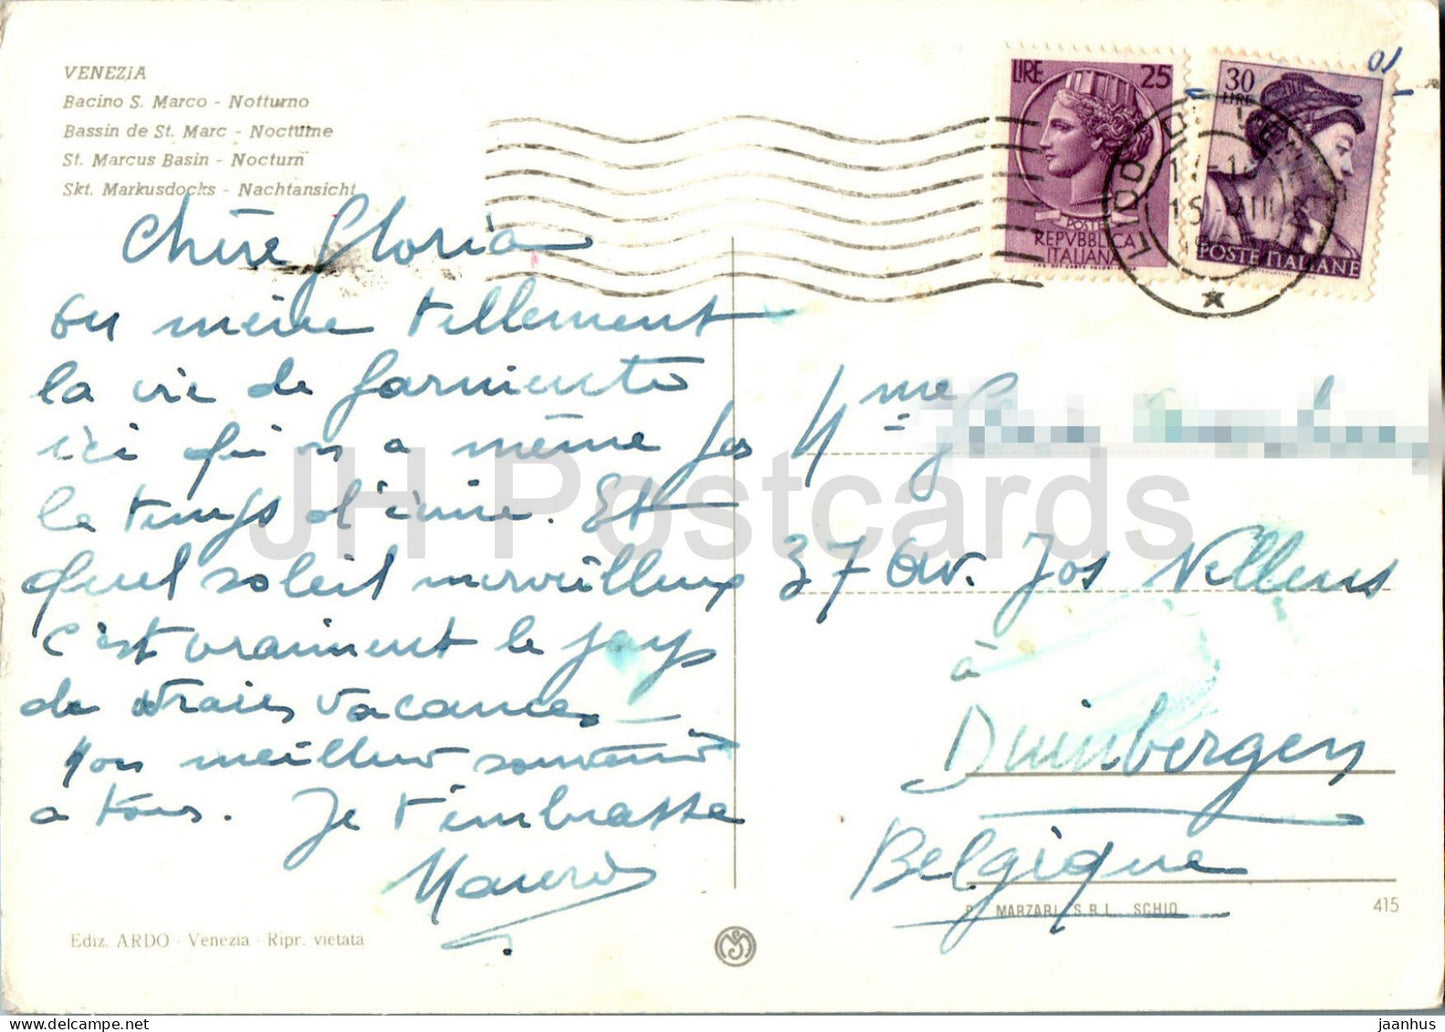 VENEZIA
Bacino S. Marco - Notturno
Bassin de St. Marc - Nocturne
St. Marcus Basin - Nocturn
Skt. Markusdocks - Nachtansicht
Chère Gloria
on mène tellement
la vie de farniente
ici qu'on a même pas
le temps d'écrire. Et
quel soleil merveilleux
c'est vraiment le pays
de vraies vacances.
Mon meilleur souvenir
a tous. Je t'embrasse
Ediz. ARDO - Venezia - Ripr. vietata
LIRE 25
POSTE
REPVBBLICA
ITALIANA
30
LIRE
POSTE ITALIANE
LIDO
15
01
Mme
37 av. Jos Nellens
à
Duinbergen
Belgique
MARZARI S.R.L. SCHIO
415
JH Postcards
jaanhus @ www.delcampe.net